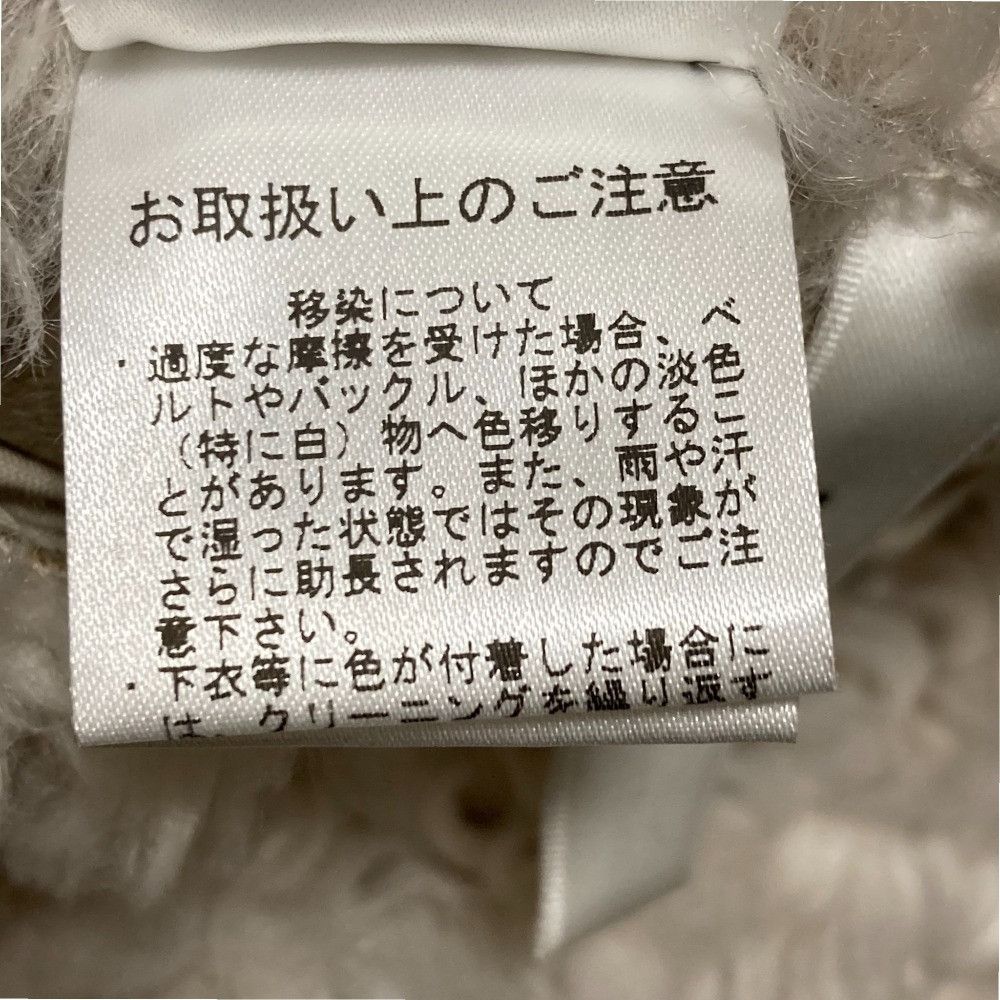 お取扱い上のご注意
移染について
・過度な摩擦を受けた場合、ベ
ルトやバックル、ほかの淡色
（特に白）物へ色移りするこ
とがあります。また、雨や汗
で湿った状態ではその現象が
さらに助長されますのでご注
意下さい。
・下衣等に色が付着した場合に
は、クリーニングを繰り返す